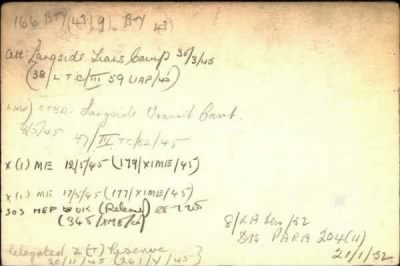 166 Bty (43)9). Bty 43)
att Langside Trans Camp 30/3/45
(38/LTC/III 59 LIAP/42)
LIAP) Langside Transit Camp.
8/5/45 47/III TC/22/45
X(i) ME 12/5/45 (179/XIME/45)
X(i) ME 17/5/45 (177/XIME/45)
SOS MEF to UK (Release) 28-7-45
(345/XME/45)
8/RA Rec/52
DIS PARA 204(11)
21/1/52
Relegated Z(T) Reserve
20/11/45 (261/Y/45)